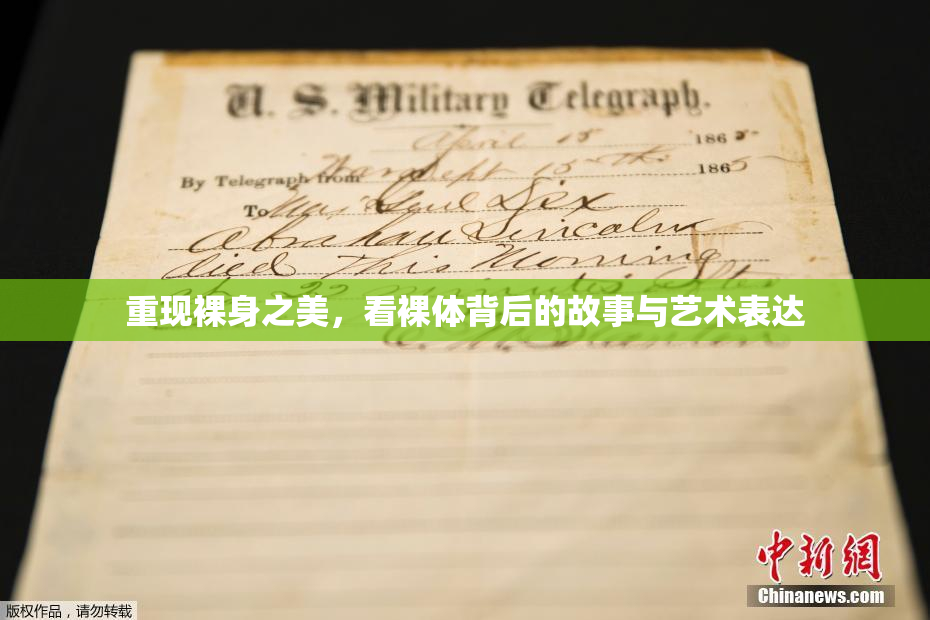 U. S. Military Telegraph.
April 15 1865
By Telegraph from War Dept 15th 1865
To Maj Genl Dix
Abraham Lincoln
died This Morning
at 22 minutes after
重现裸身之美，看裸体背后的故事与艺术表达
E. M. Stanton
中新网
Chinanews.com
版权作品，请勿转载